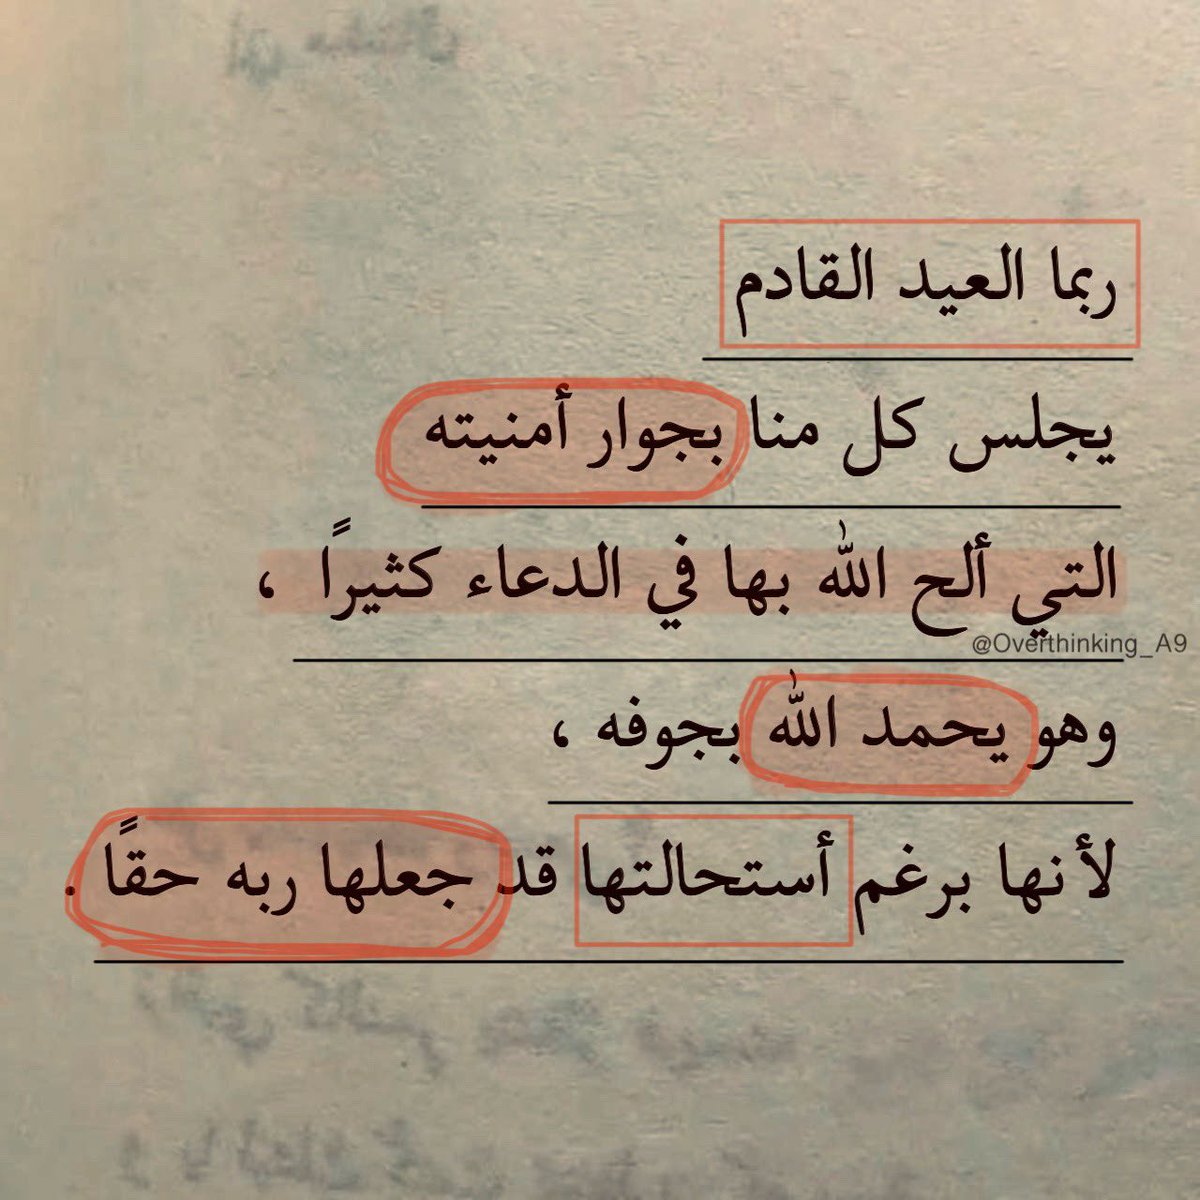 ربما العيد القادم
يجلس كل منا بجوار أمنيته
التي ألح الله بها في الدعاء كثيرًا ،
@Overthinking_A9
وهو يحمد الله بجوفه ،
لأنها برغم أستحالتها قد جعلها ربه حقًا .